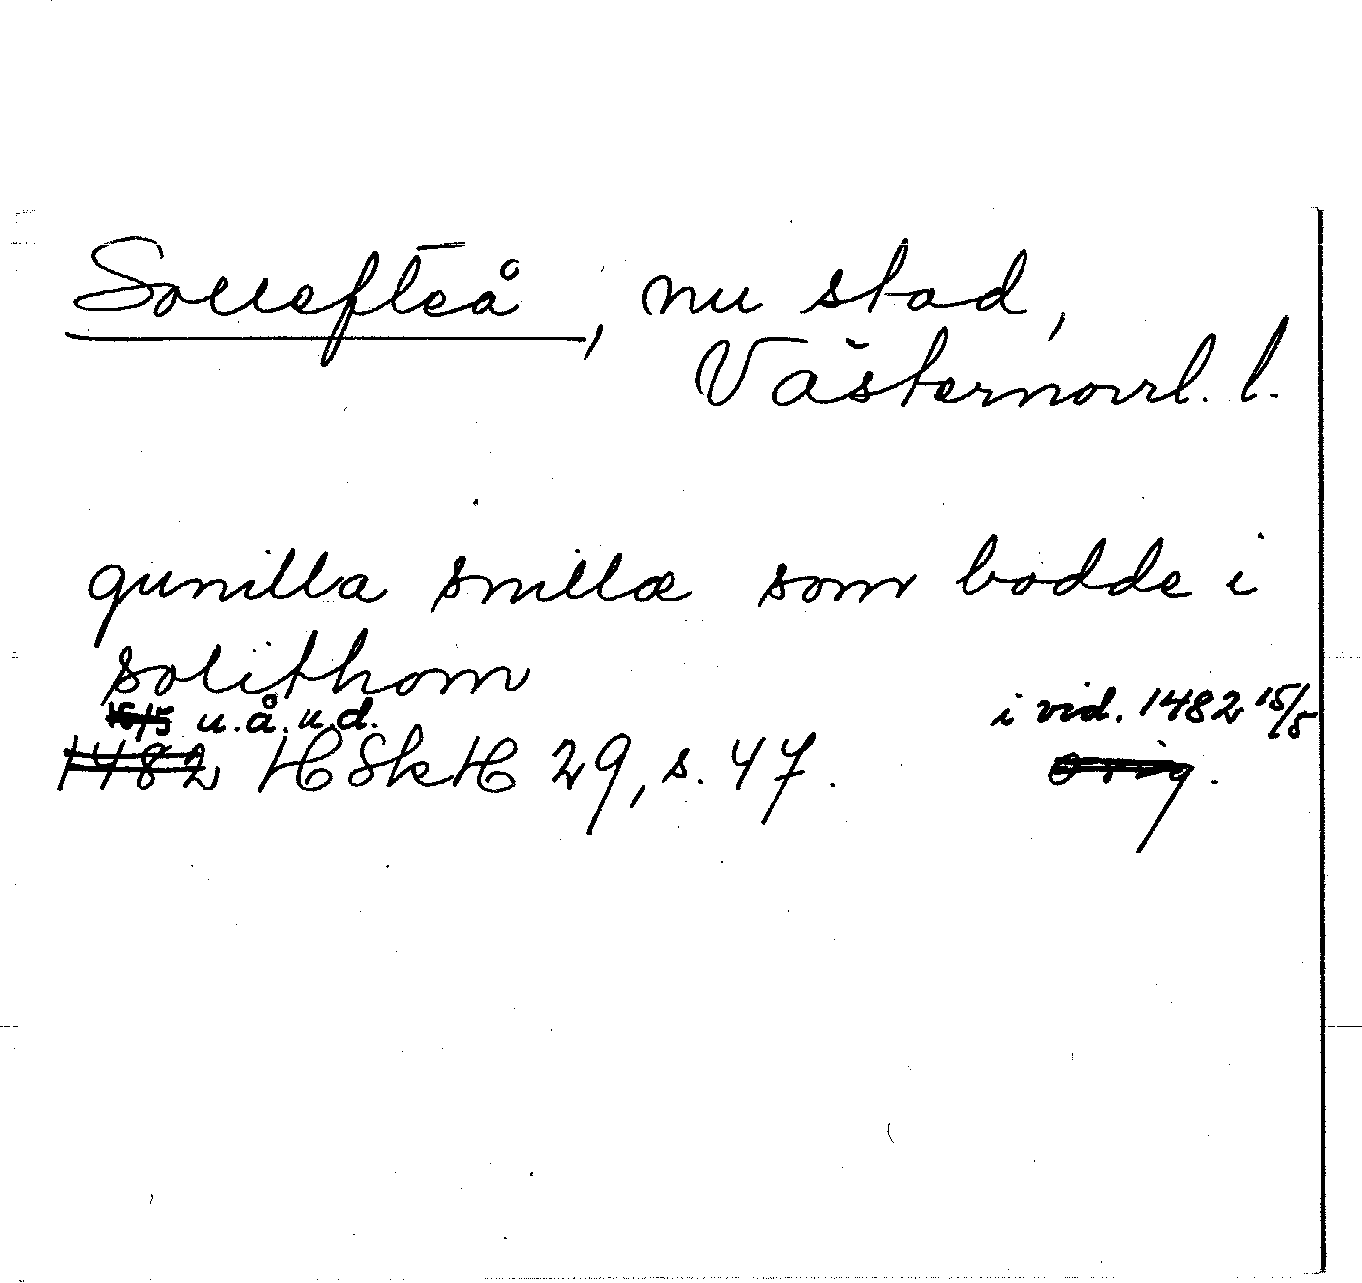 Sollefteå, nu stad,
Västernorrl. l.
gunilla snilla som bodde i
solithom
15/5 u.å.u.d. i vid. 1482 15/5
1482 HSkH 29, s. 47. orig.